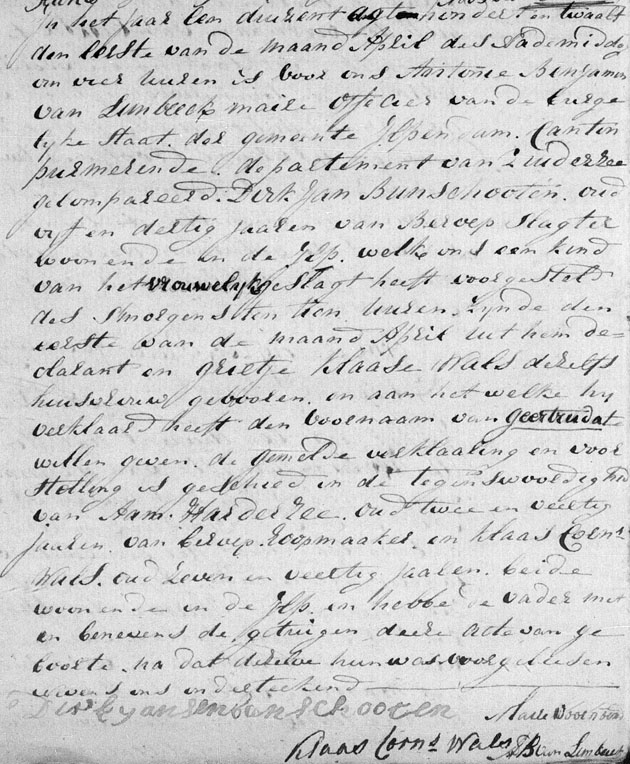 In het jaar Een duizent agtenhondert en twaalf
den eerste van de maand April des Nademiddag
om vier uuren is voor ons Antonie Benjamin
van Limbeeck maire officier van de burge
lyke Staat. der gemeente Ilpendam. Canton
purmerende. departement van Zuiderzee
gecompareerd. Dirk Jan Bunschooten. oud
vyf en dertig jaaren van Beroep Slagter
woonende in de Ilp. welke ons een kind
van het vrouwelyk geslagt heeft voorgesteld
des smorgens ten tien uuren. zynde den
eerste van de maand April uit hem de-
clarant en grietje Klaase Wals deszelfs
huisvrouw gebooren. en aan het welke hy
verklaard heeft den voornaam van geertruida te
willen geven. de gemelde verklaaring en voor
stelling is geschied in de tegenswoordighyd
van Aam. Harderzee. oud twee en veertig
jaaren. van beroep. en Klaas Corns
Wals. oud Zeven en veertig jaaren. beide
woonende in de Ilp. en hebbe de vader met
en benevens de getuigen deeze acte van ge
boorte. na dat dezelve hun was voorgeleesen
nevens ons onderteekend
Dirk yansen bunschooten
Klaas Corns Wals AB van Limbeeck